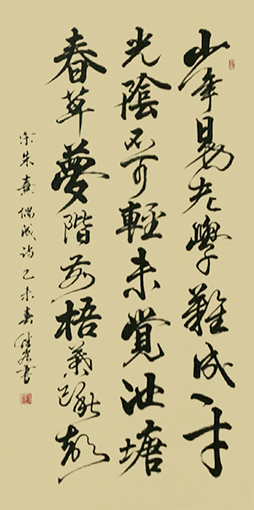 少年易老學難成一寸
光陰不可輕未覺池塘
春草夢階前梧葉已秋聲
宋朱熹偶成詩乙未書